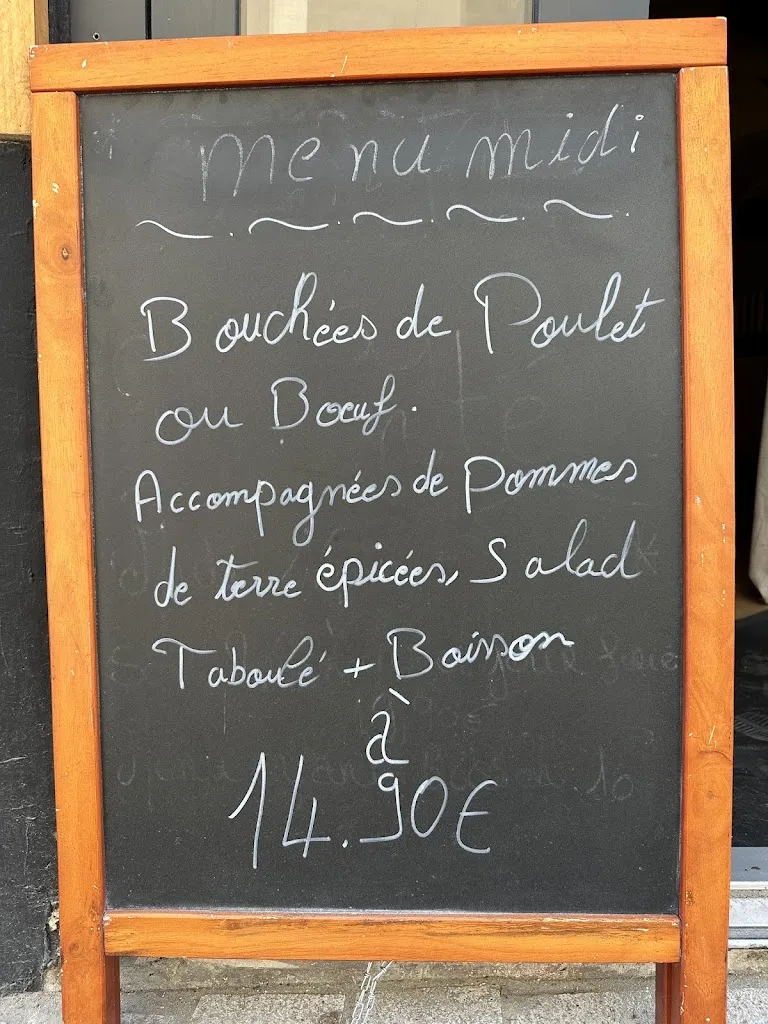 Menu midi
Bouchées de Poulet
ou Bœuf.
Accompagnées de Pommes
de terre épicées, Salad
Taboulé + Boisson
à
14.90€